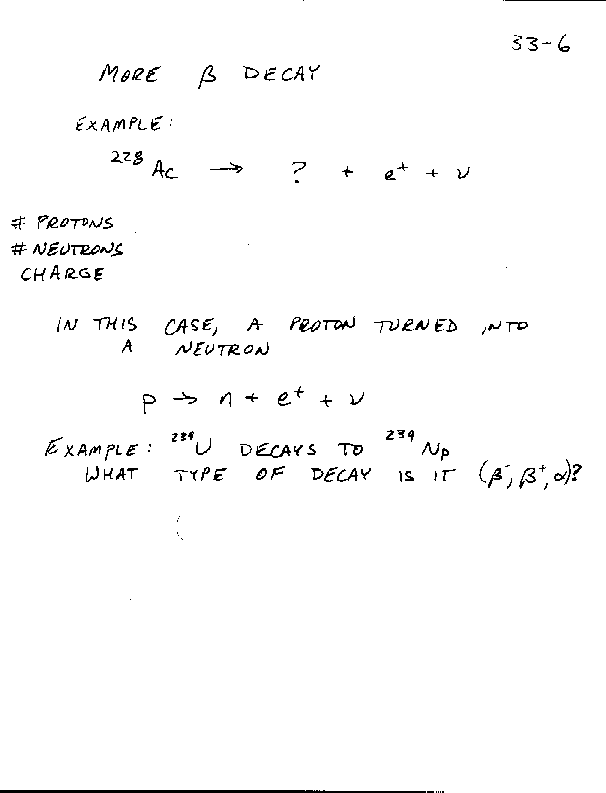 33-6
MORE β DECAY
EXAMPLE:
²²⁸Ac → ? + e⁺ + ν
# PROTONS
# NEUTRONS
CHARGE
IN THIS CASE, A PROTON TURNED INTO
A NEUTRON
p → n + e⁺ + ν
EXAMPLE: ²³⁹U DECAYS TO ²³⁹Np
WHAT TYPE OF DECAY IS IT (β⁻, β⁺, α)?